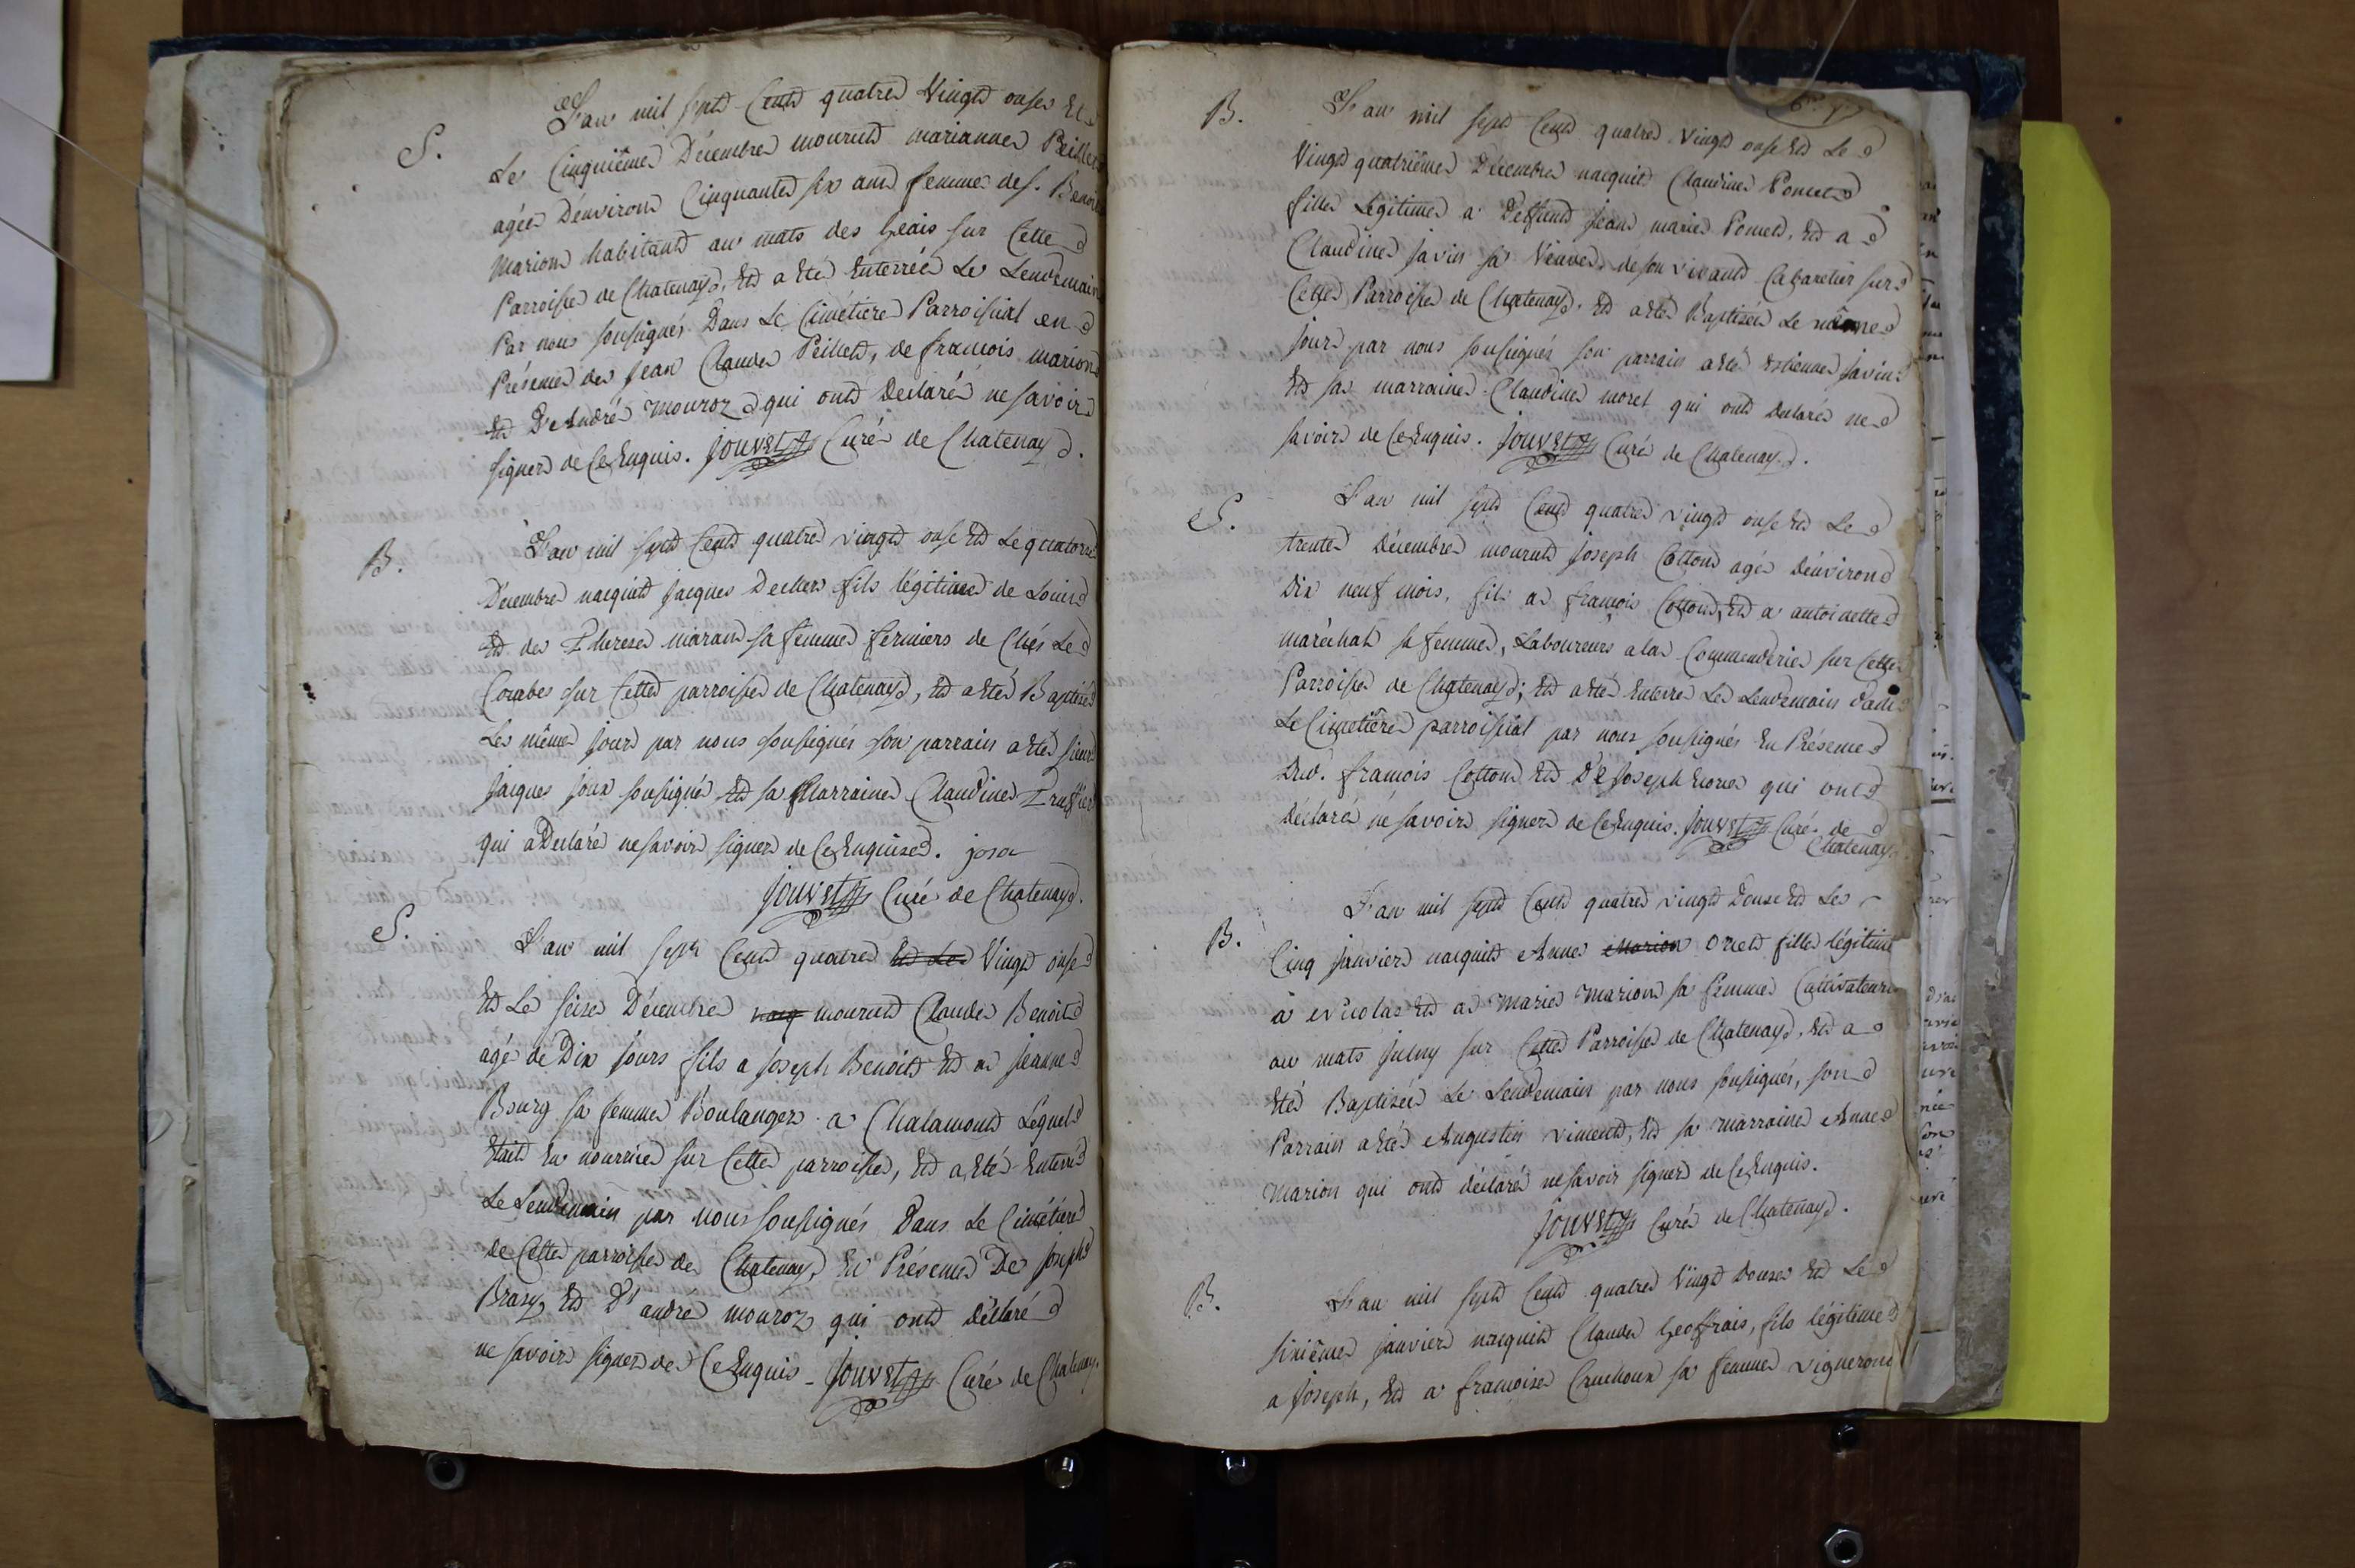 S.
L'an mil sept Cent quatre Vingt onse Et
Le Cinquiême Décembre mourut marianne Peillet
agée D'environ Cinquante six ans femme de f. Benoit
Marion habitant au mats des Geais sur Cette
Parroisse de Chatenay, Et a Eté Enterrée Le Lendemain
Par nous soussignés Dans Le Cimétiere Parroissial en
Présence de Jean Claude Peillet, de françois marion
Et D'André Mouroz qui ont Declaré ne savoir
signer de Ce Enquis. Jouvet Curé de Chatenay.
B.
L'an mil sept Cent quatre vingt onse Et Le quatorze
Décembre naquit Jacques Decher fils légitime de Louis
Et de Therese maran sa femme fermiers de Chés Le
Corabes sur Cette parroisse de Chatenay, Et a Eté Baptisé
Le même jour par nous soussignés son parrain a Eté sieur
Jacques Joux soussigné Et sa Marraine Claudine
qui a Declaré ne savoir signer de Ce Enquise.
Jouvet Curé de Chatenay.
S.
L'an mil sept Cent quatre Et Le Vingt onse
Et Le seise Décembre naq mourut Claude Benoit
agé de Dix jours fils a Joseph Benoit Et a Jeanne
Bourg sa femme Boulanger a Chalamont Lequel
Etait En nourrice sur Cette parroisse, Et a Eté Enterré
Le Lendemain par nous soussignés Dans Le Cimétiere
de Cette parroisse de Chatenay, En Présence De Joseph
Brasy, Et D'andré mouroz qui ont Déclaré
ne savoir signer de Ce Enquis - Jouvet Curé de Chatenay.
B.
L'an mil sept Cent quatre Vingt onse Et Le
Vingt quatriême Décembre naquit Claudine Poncet
fille Légitime a Deffunt Jean marie Poncet, Et a
Claudine Savin sa Veuve, de son vivant Cabaretier sur
Cette Parroisse de Chatenay. Et a Eté Baptisée Le même
jour par nous soussignés son parrain a Eté Estienne Savin
Et sa marraine Claudine moret qui ont Declaré ne
savoir de Ce Enquis. Jouvet Curé de Chatenay.
S.
L'an mil sept Cent quatre vingt onse Et Le
trente Décembre mourut Joseph Cotton agé D'environ
Dix neuf mois, fils a françois Cotton, Et a antoinette
maréchal sa femme, Laboureurs a la Commenderie sur Cette
Parroisse de Chatenay; Et a Eté Enterré Le Lendemain Dans
Le Cimetiere parroissial par nous soussignés En Présence
Dud. françois Cotton Et De Joseph qui ont
déclaré ne savoir signer de Ce Enquis. Jouvet Curé de
Chatenay.
B.
L'an mil sept Cent quatre vingt Douse Et Le
Cinq janvier naquit Anne Marion Oriet fille légitime
a Nicolas Et a Marie Marion sa femme Cultivateurs
au mats Jueny sur Cette Parroisse de Chatenay, Et a
Eté Baptisée Le Lendemain par nous soussignés, son
Parrain a Eté Augustin viment, Et sa marraine Anne
Marion qui ont déclaré ne savoir signer de Ce Enquis.
Jouvet Curé de Chatenay.
B.
L'an mil sept Cent quatre Vingt Douse Et Le
sixiême janvier naquit Claude Geoffrais, fils légitime
a Joseph, Et a françoise Cruchoux sa femme vigneron